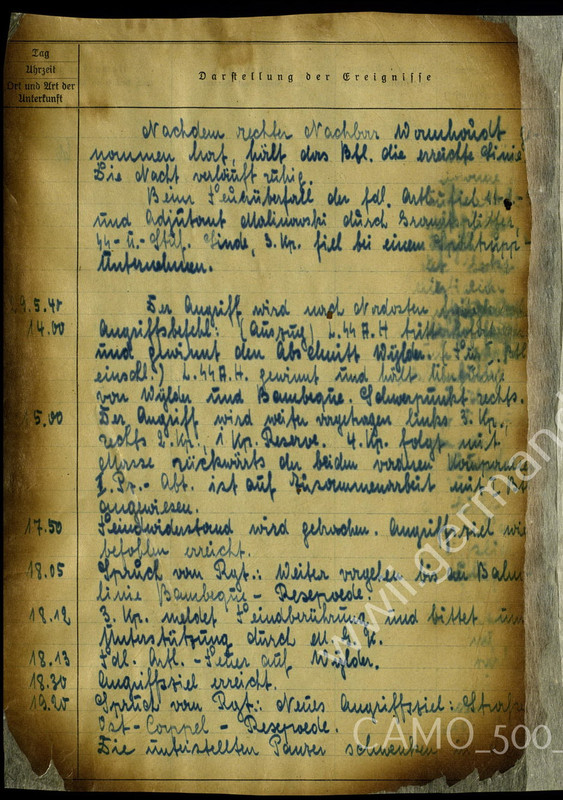 Tag
Uhrzeit
Ort und Art der
Unterkunft
Darstellung der Ereignisse
Nachdem rechter Nachbar Wormhoudt
nommen hat, hält das Btl. die erreichte Linie
Die Nacht verläuft ruhig.
Beim Feuerüberfall der fdl. Artl. fiel
und Adjutant Malinowski durch Granatsplitter,
44-U.-Stuf. Linde, 3. Kp. fiel bei einem Spähtrupp-
Unternehmen.
9.5.40
Der Angriff wird nach Nordosten
14.00
Angriffsbefehl: (Auszug) L.44 A.H. tritt
und gewinnt den Abschnitt Wylder.
einschl.) L.44 A.H. gewinnt und hält
von Wylder und Bambeque. Schwerpunkt rechts.
5.00
Der Angriff wird weiter vorgetragen links 3. Kp.,
rechts 2. Kp., 1 Kp. Reserve. 4. Kp. folgt mit
Masse rückwärts der beiden vorderen
I. Pz.-Abt. ist auf Zusammenarbeit mit
angewiesen.
17.50
Feindwiderstand wird gebrochen. Angriffsziel wie
befohlen erreicht.
18.05
Spruch vom Rgt.: Weiter vorgehen bis zu Bahn
linie Bambeque - Resepoede.
18.12
3. Kp. meldet Feindberührung und bittet um
Unterstützung durch
18.13
Fdl. Artl.-Feuer auf Wylder.
18.30
Angriffsziel erreicht.
19.20
Spruch vom Rgt.: Neues Angriffsziel: Straße
Ost-Cappel - Resepoede.
Die unterstellten Panzer schwenken
www.german
CAMO_500_